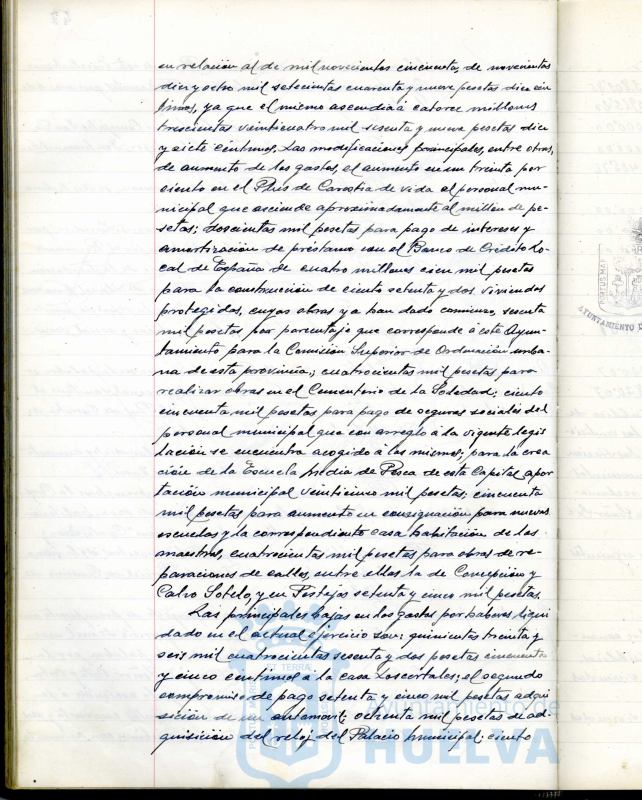 en relación al de mil novecientos cincuenta, de novecientas
diez y ocho mil setecientas cuarenta y nueve pesetas diez cén
timos, ya que el mismo ascendía á catorce millones
trescientas veinticuatro mil sesenta y nueve pesetas diez
y siete céntimos. Las modificaciones principales, entre otras,
de aumento de los gastos, el aumento en un treinta por
ciento en el Plus de Carestía de vida al personal mu-
nicipal que asciende aproximadamente al millón de pe-
setas; doscientas mil pesetas para pago de intereses y
amortización de préstamo con el Banco de Crédito Lo-
cal de España de cuatro millones cien mil pesetas
para la construcción de ciento setenta y dos viviendas
protegidas, cuyas obras ya han dado comienzo, sesenta
mil pesetas por porcentaje que corresponde á este Ayun-
tamiento para la Comisión Superior de Ordenación urba-
na de esta provincia; cuatrocientas mil pesetas para
realizar obras en el Cementerio de la Soledad; ciento
cincuenta mil pesetas para pago de seguros sociales del
personal municipal que con arreglo á la vigente legis
lación se encuentra acogido á los mismos; para la crea
ción de la Escuela Media de Pesca de esta Capital apor
tación municipal veinticinco mil pesetas; cincuenta
mil pesetas para aumento en consignación para nuevas
escuelas y la correspondiente casa habitación de los
maestros, cuatrocientas mil pesetas para obras de re-
paraciones de calles, entre ellas la de Concepción y
Calvo Sotelo, y en Festejos setenta y cinco mil pesetas.
Las principales bajas en los gastos por haberes liqui
dado en el actual ejercicio son: quinientas treinta y
seis mil cuatrocientas sesenta y dos pesetas cincuenta
y cinco céntimos á la casa Loscertales; el segundo
compromiso de pago setenta y cinco mil pesetas adqui
sición de un automóvil; ochenta mil pesetas de ad-
quisición del reloj del Palacio Municipal; ciento
Ayuntamiento de
HUELVA